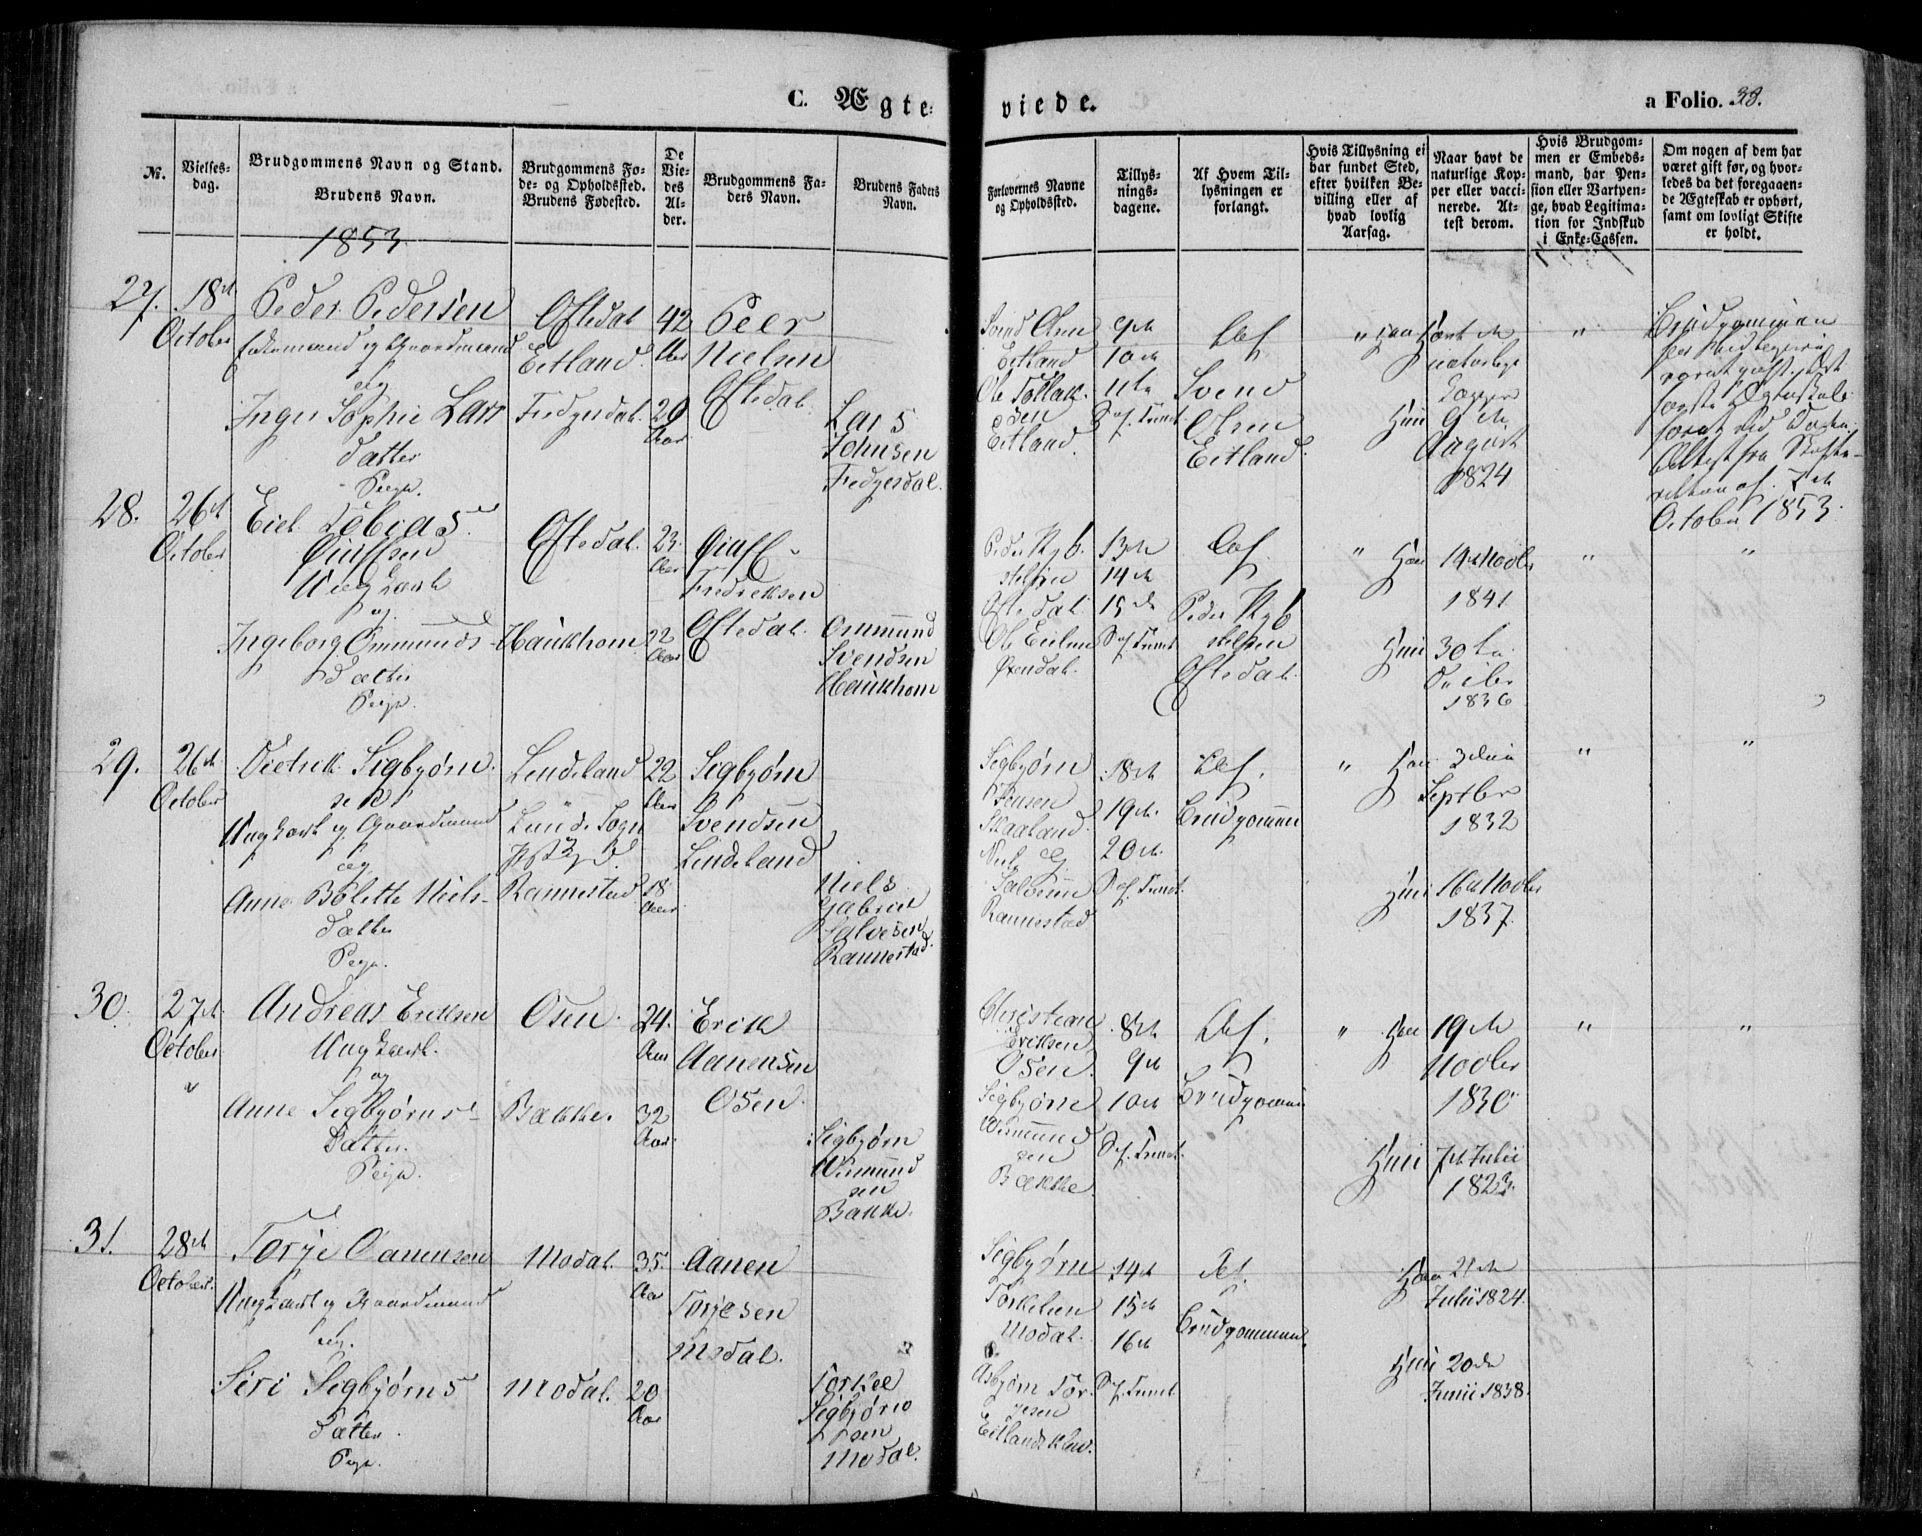 C. Ægte- viede.
a Folio. 38.
No.
Vielses-
dag.
Brudgommens Navn og Stand.
Brudens Navn.
Brudgommens Fø-
de- og Opholdssted.
Brudens Fødested.
De
Vie-
des
Al-
der.
Brudgommens Fa-
ders Navn.
Brudens Faders
Navn.
Forlovernes Navne
og Opholdssted.
Tillys-
nings-
dagene.
Af Hvem Til-
lysningen er
forlangt.
Hvis Tillysning ei
har fundet Sted,
efter hvilken Be-
villing eller af
hvad lovlig
Aarsag.
Naar havt de
naturlige Kop-
per eller vacci-
nerede. At-
test derom.
Hvis Brudgom-
men er Embeds-
mand, har Pen-
sion eller Vartpen-
ge, hvad Legitima-
tion for Indskud
i Enke-Cassen.
Om nogen af dem har
været gift før, og hvor-
ledes da det foregaaen-
de Ægteskab er ophørt,
samt om lovligt Skifte
er holdt.
1853
27.
18de
October
Peder Pedersen
Enkemand og Gaardmand
og
Inger Sophie Lars
Datter
Pige.
Oftedal
Eitland
Fedgerdal.
42
Aar
20
Aar
Peer
Nielsen
Oftedal.
Lars
Johnsen
Fedgerdal.
Svend Olsen
Eitland
Ole Tollak-
sen
Eitland.
9de
10de
11te
S. e. Trinit.
Svend
Olsen
Eitland.
"
Han havt de
naturlige
Kopper
Hun 9de
August
1824
"
Brudgommen
været gift. Det
første Ægteskab
Attest fra Skifte-
retten af 7de
October 1853.
28.
26de
October
Eiel Tobias
Olaffsen
Ungkarl
og
Ingeborg Ommunds-
Datter
Pige.
Oftedal.
Haukhom
23.
Aar
22
Aar
Olaff
Fredriksen
Oftedal.
Ommund
Svendsen
Haukhom
Oftedal.
Ole Eielsen
13de
14de
15de
S. e. Trinit.
Peder
Oftedal.
"
Han 14de Novbr
1841
Hun 30te
1836
"
"
29.
26de
October
Didrik Sigbjørn-
sen
Ungkarl og Gaardmand
og
Anne Bolette Niels-
Datter
Pige.
Lendeland
Lunde Sogn
Rannestad
22
Aar
18
Aar
Sigbjørn
Svendsen
Lendeland
Niels
Gabriel
Salvesen
Rannestad.
Sigbjørn
Jensen
Skaaland
og
Salvesen
Rannestad
18de
19de.
20de.
S. e. Trinit.
Brudgommen
"
Han 3die
Septbr
1832
Hun 16de Novbr
1837.
"
"
30.
27de
October.
"
Andreas Eriksen
Ungkarl.
og
Anne Sigbjørns-
Datter.
Pige.
Osen.
Bakke.
24.
Aar
32
Aar.
Erik
Aanensen
Osen.
Sigbjørn
Vermund
sen
Bakke.
Christian
Eriksen
Osen.
Sigbjørn
Vermund
sen
Bakke.
8de
9de
10de
S. e. Trinit.
Brudgommen
"
Han 19de
Novbr
1830
Hun 7de Julii
1823.
"
"
31.
28de
October.
Torje Aanensen
Ungkarl og Gaardmand
og.
Siri Sigbjørns
Datter.
Pige.
Modal.
Modal.
35.
Aar
20
Aar
Aanen
Torjesen
Modal.
Torkel
Sigbjørn
sen
Modal.
Sigbjørn
Torkelsen
Modal.
Asbjørn Tor-
jesen
14de
15de
16de
S. e. Trinit.
Brudgommen.
Han 21de
Julii 1824.
Hun 20de
Junii 1838.